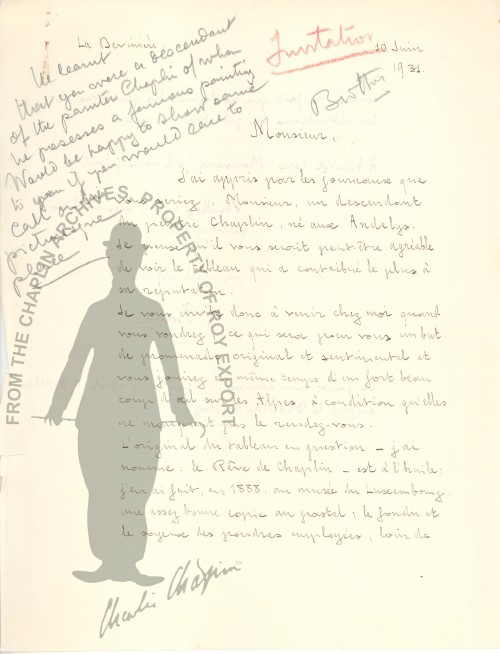 Invitation
10 Juin
1931.
He learnt
that you were a descendant
of the painter Chaplin of whom
he possesses a famous painting
Would be happy to show same
to you if you would care to
call on him
picturesque
place
Monsieur,
J'ai appris par les journaux que
vous seriez Monsieur, un descendant
du peintre Chaplin, né aux Andelys.
Je pense qu'il vous serait peut-être agréable
de voir le tableau qui a contribué le plus à
sa réputation.
Je vous invite donc à venir chez moi quand
vous voudrez, ce qui sera pour vous un but
de promenade original et sentimental et
vous jouirez en même temps d'un fort beau
coup d'œil sur les Alpes, à condition qu'elles
ne manquent pas le rendez-vous.
L'original du tableau en question - j'ai
nommé : le Rêve de Chaplin - est à l'huile;
j'en ai fait, en 1888, au musée du Luxembourg,
une assez bonne copie au pastel; le fondu et
le soyeux des poudres employées, loin de
FROM THE CHAPLIN ARCHIVES, PROPERTY OF ROY EXPORT
Charlie Chaplin